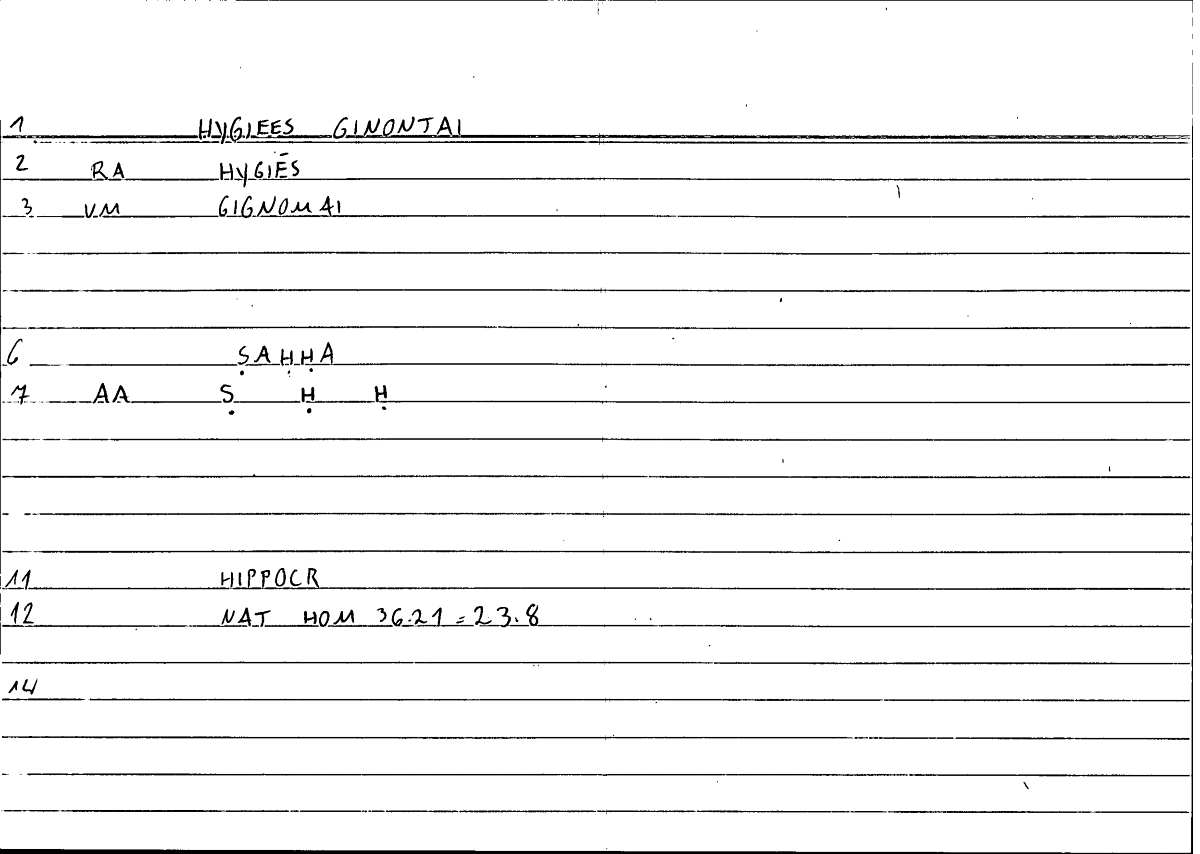 1 HYGIEES GINONTAI
2 RA HYGIĒS
3 VM GIGNOMAI
6 ṢAḤḤA
7 AA Ṣ Ḥ Ḥ
11 HIPPOCR
12 NAT HOM 36.21 = 23.8
14